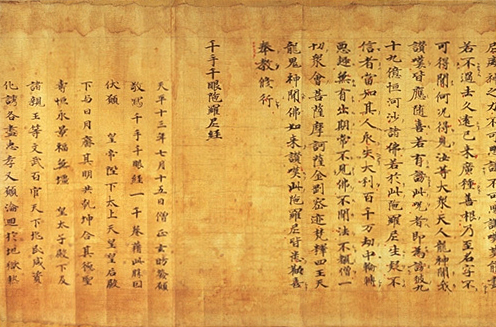 若不過去久遠已來廣種善根乃至名字不
可得聞何況得見汝等大衆天人龍神聞我
讃嘆皆應隨喜若有謗此呪者即爲謗彼九
十九億恒河沙諸佛若於此陁羅尼生疑不
信者當知其人永失大利百千万劫中輪轉
惡趣無有出期常不見佛不聞法不覩僧一
切衆會菩薩摩訶薩金剛密迹梵釋四王天
龍鬼神聞佛如來讃嘆此陁羅尼皆悉歡喜
奉教修行
千手千眼陁羅尼經
天平十三年七月十五日僧正玄昉發願
敬寫千手千眼經一千卷藉此勝因
伏願 皇帝陛下太上天皇皇后殿
下与日月齊其明共乾坤合其德聖
壽恒永景福無壃 皇太子殿下及
諸親王等文武百官天下兆民咸資
化誘各盡忠孝又願淪回於地獄